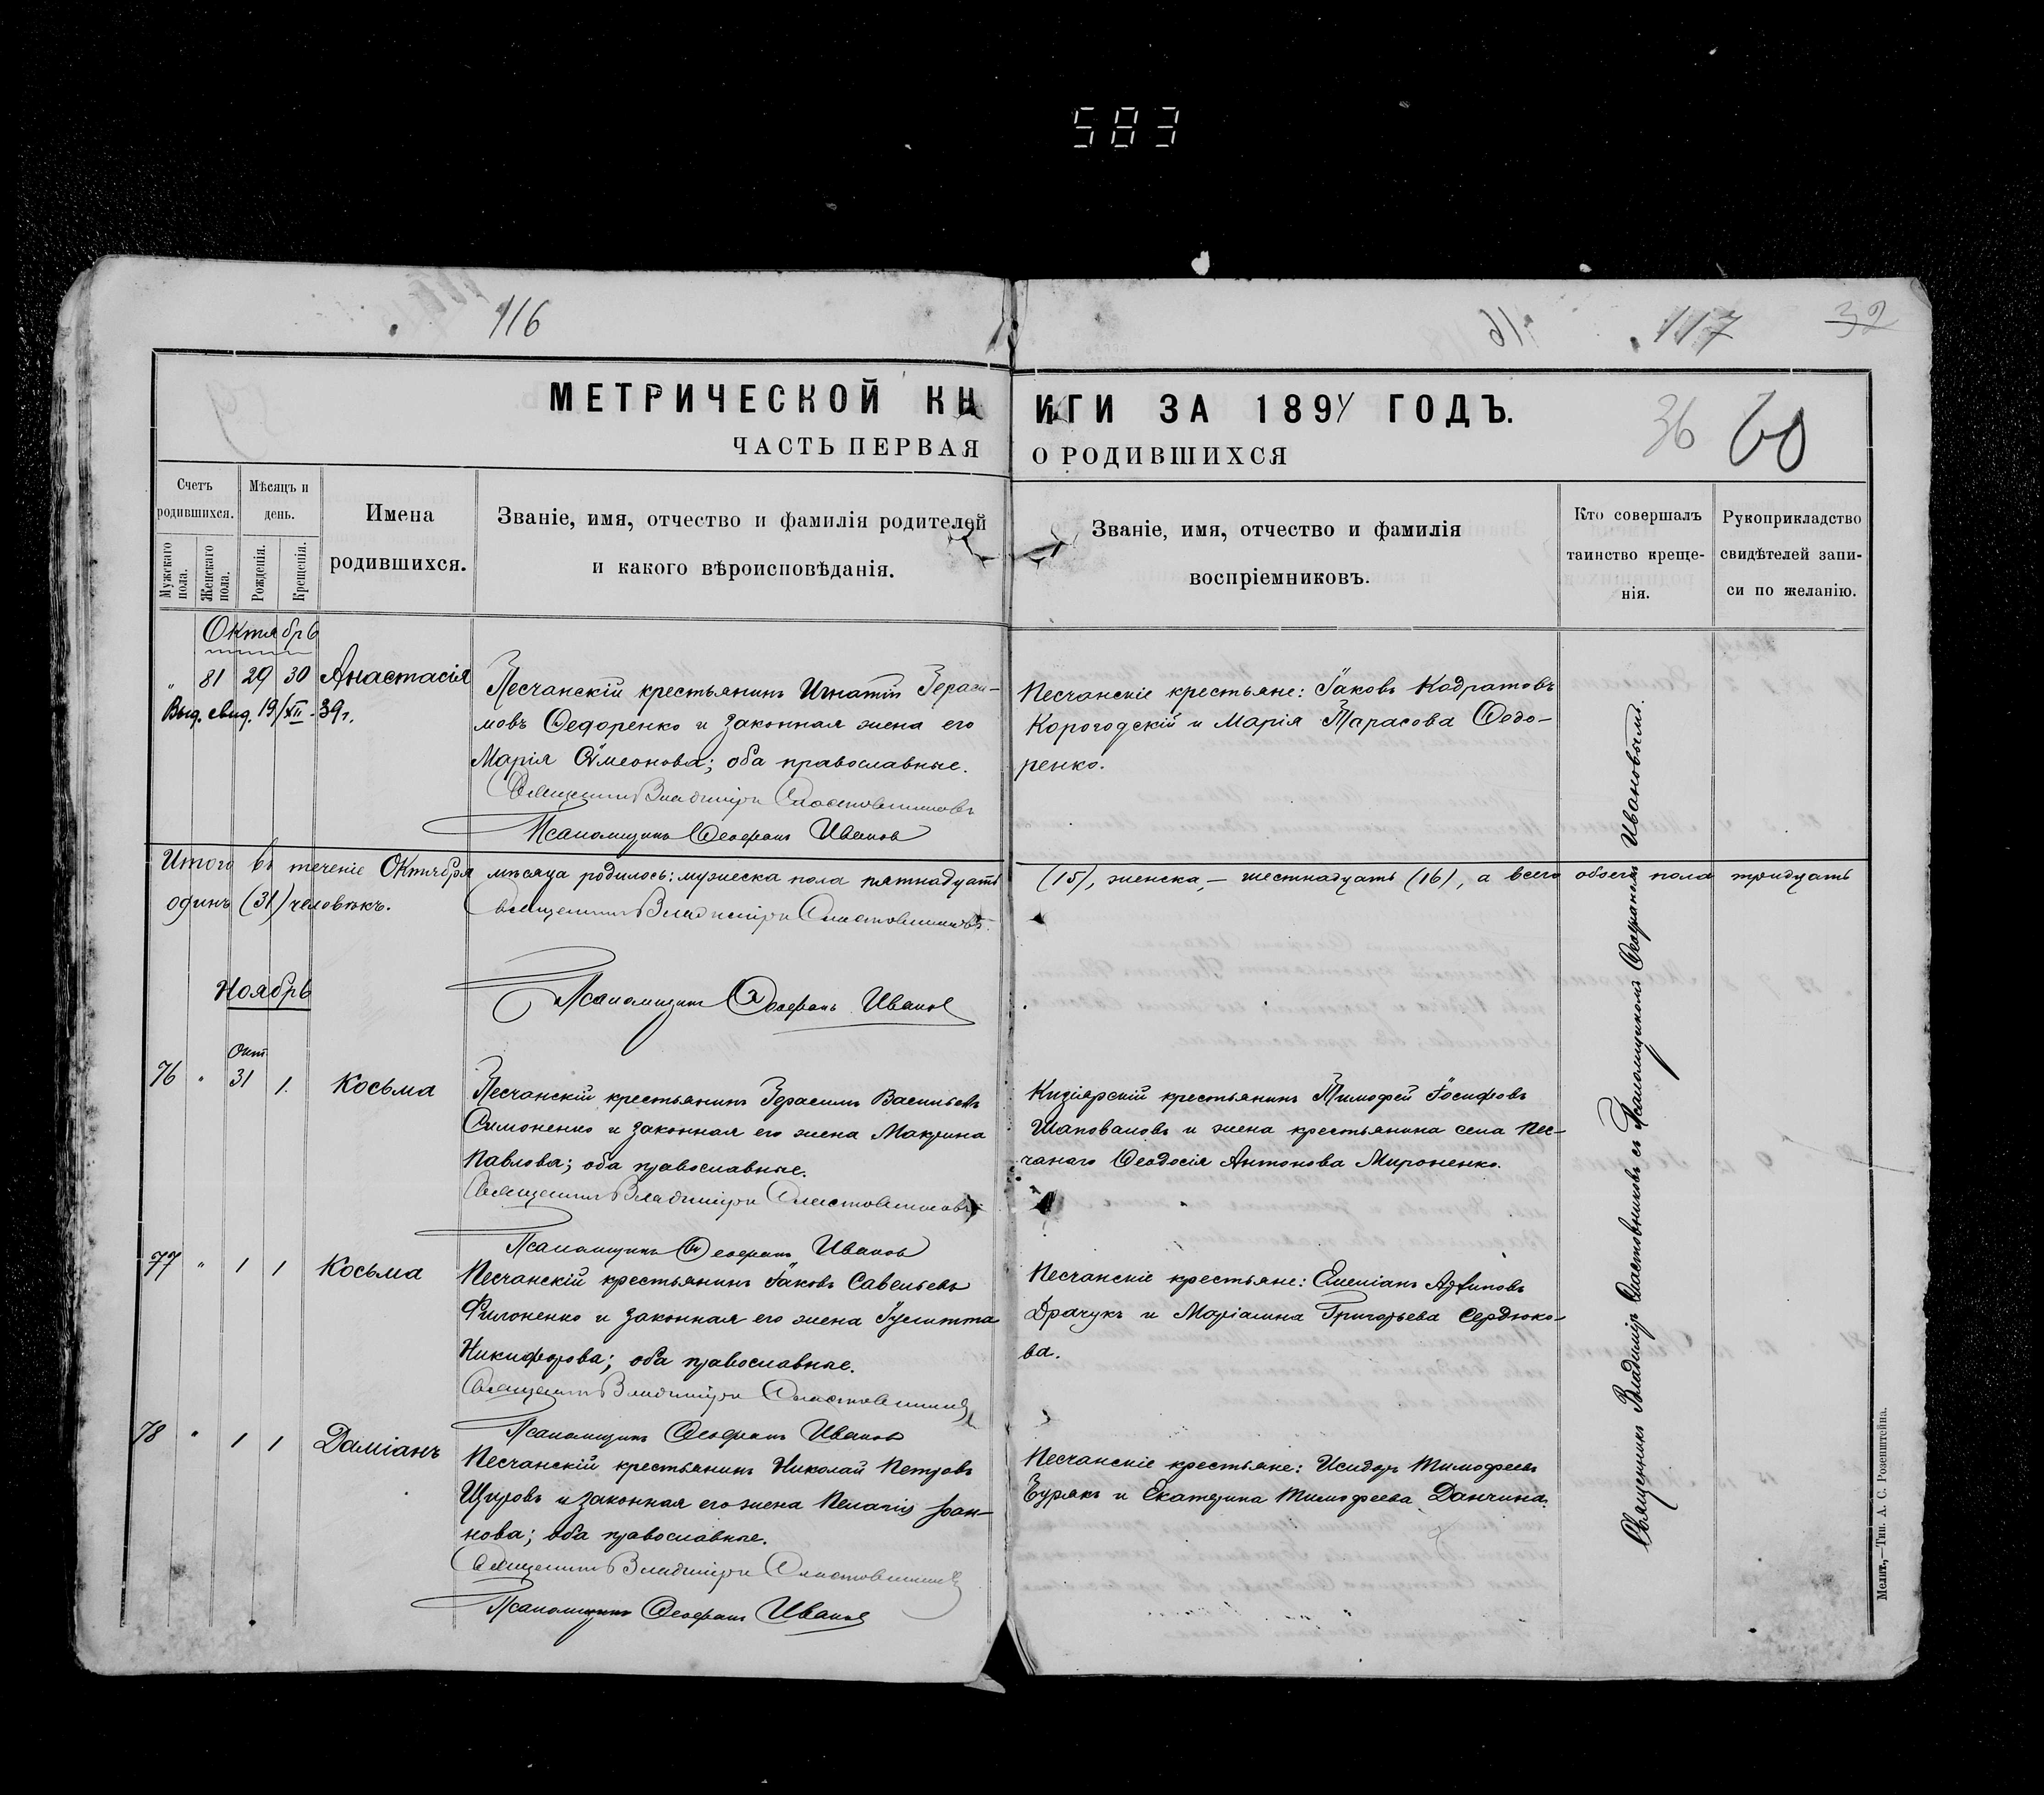 583
116
116
117
32
МЕТРИЧЕСКОЙ КНИГИ ЗА 1894 ГОДЪ.
36 60
ЧАСТЬ ПЕРВАЯ О РОДИВШИХСЯ
Счетъ родившихся.
Мужскаго пола.
Женскаго пола.
Мѣсяцъ и день.
Рожденія.
Крещенія.
Имена родившихся.
Званіе, имя, отчество и фамилія родителей
и какого вѣроисповѣданія.
Званіе, имя, отчество и фамилія
воспріемниковъ.
Кто совершалъ
таинство креще-
нія.
Рукоприкладство
свидѣтелей запи-
си по желанію.
Октябрь
" 81 29 30 Анастасія
Выд. свид. 19/XII-39г.
Песчанскій крестьянинъ Игнатій Гераси-
мовъ Ѳедоренко и законная жена его
Марія Сѵмеонова; оба православные.
Священникъ Владиміръ Сластовниковъ
Псаломщикъ Ѳеофанъ Ивановъ
Песчанскіе крестьяне: Іаковъ Кодратовъ
Корогодскій и Марія Тарасова Ѳодо-
ренко.
Итого въ теченіе Октября мѣсяца родилось: мужеска пола пятнадцать (15), женска, — шестнадцать (16), а всего обоего пола тридцать
одинъ (31) человѣкъ.
Священникъ Владиміръ Сластовниковъ.
Псаломщикъ Ѳеофанъ Ивановъ
Ноябрь
Окт.
76 " 31 1. Косьма
Песчанскій крестьянинъ Герасимъ Васильевъ
Симоненко и законная его жена Макрина
Павлова; оба православные.
Священникъ Владиміръ Сластовниковъ
Псаломщикъ Ѳеофанъ Ивановъ
Кизіярскій крестьянинъ Тимофей Іосифовъ
Шаповаловъ и жена крестьянина села Пес-
чанаго Ѳеодосія Антонова Мироненко.
77 " 1 1 Косьма
Песчанскій крестьянинъ Іаковъ Савельевъ
Филоненко и законная его жена Іулитта
Никифорова; оба православные.
Священникъ Владиміръ Сластовниковъ
Псаломщикъ Ѳеофанъ Ивановъ
Песчанскіе крестьяне: Емеліанъ
Драчукъ и Маріамна Григорьева Сердюко-
ва.
78 " 1 1 Даміанъ
Песчанскій крестьянинъ Николай Петровъ
Щировъ и законная его жена Пелагія Іоан-
нова; оба православные.
Священникъ Владиміръ Сластовниковъ
Псаломщикъ Ѳеофанъ Ивановъ
Песчанскіе крестьяне: Исидоръ Тимофеевъ
Бурякъ и Екатерина Тимофеева Данчина.
Священникъ Владиміръ Сластовниковъ съ Псаломщикомъ Ѳеофаномъ Ивановымъ.
Мелит.,—Тип. А. С. Розенштейна.